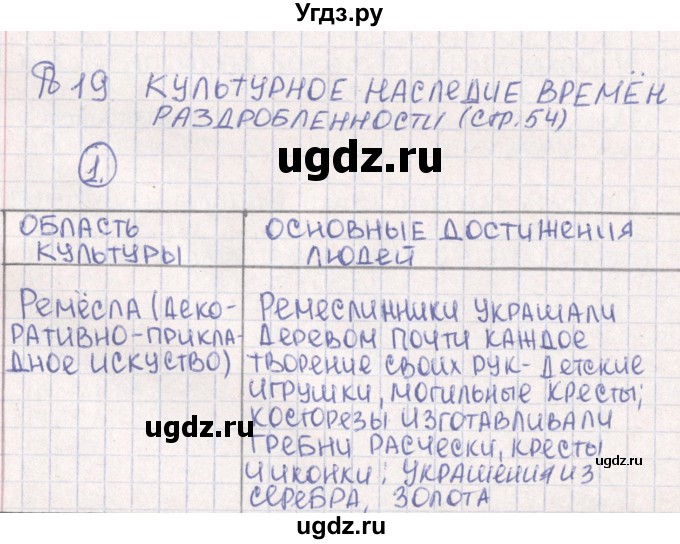 Угдз.ру
§ 19 КУЛЬТУРНОЕ НАСЛЕДИЕ ВРЕМЁН
РАЗДРОБЛЕННОСТИ (СТР.54)
ugdz.ru
1.
ОБЛАСТЬ
КУЛЬТУРЫ
ОСНОВНЫЕ ДОСТИЖЕНИЯ
ЛЮДЕЙ
РЕМЁСЛА (ДЕКО-
РАТИВНО-ПРИКЛА-
ДНОЕ ИСКУСТВО)
РЕМЕСЛИННИКИ УКРАШАЛИ
ДЕРЕВОМ ПОЧТИ КАЖДОЕ
ТВОРЕНИЕ СВОИХ РУК- ДЕТСКИЕ
ИГРУШКИ, МОГИЛЬНЫЕ КРЕСТЫ;
КОСТОРЕЗЫ ИЗГОТАВЛИВАЛИ
ГРЕБНИ РАСЧЕСКИ, КРЕСТЫ
И ИКОНКИ; УКРАШЕНИЯ ИЗ
СЕРЕБРА, ЗОЛОТА
ugdz.ru
ugdz.ru
ugdz.ru